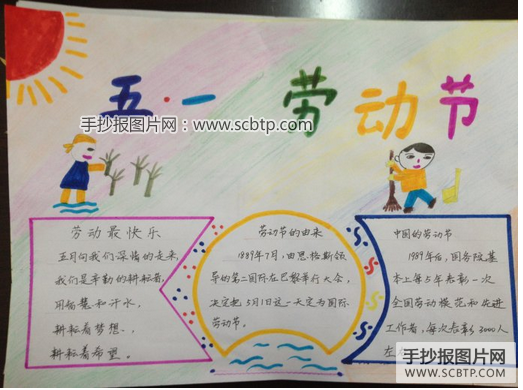 五·一 劳动节
手抄报图片网:www.scbtp.com
劳动最快乐
五月向我们深情的走来,
我们是辛勤的耕耘者,
用智慧和汗水,
耕耘着梦想、
耕耘着希望。
劳动节的由来
1889年7月,由恩格斯领
导的第二国际在巴黎举行大会,
决定把5月1日这一天定为国际
劳动节。
中国的劳动节
1989年后,国务院基
本上每5年表彰一次
全国劳动模范和先进
工作者,每次表彰3000人
左
手抄报图片网
WWW.SCBTP.COM